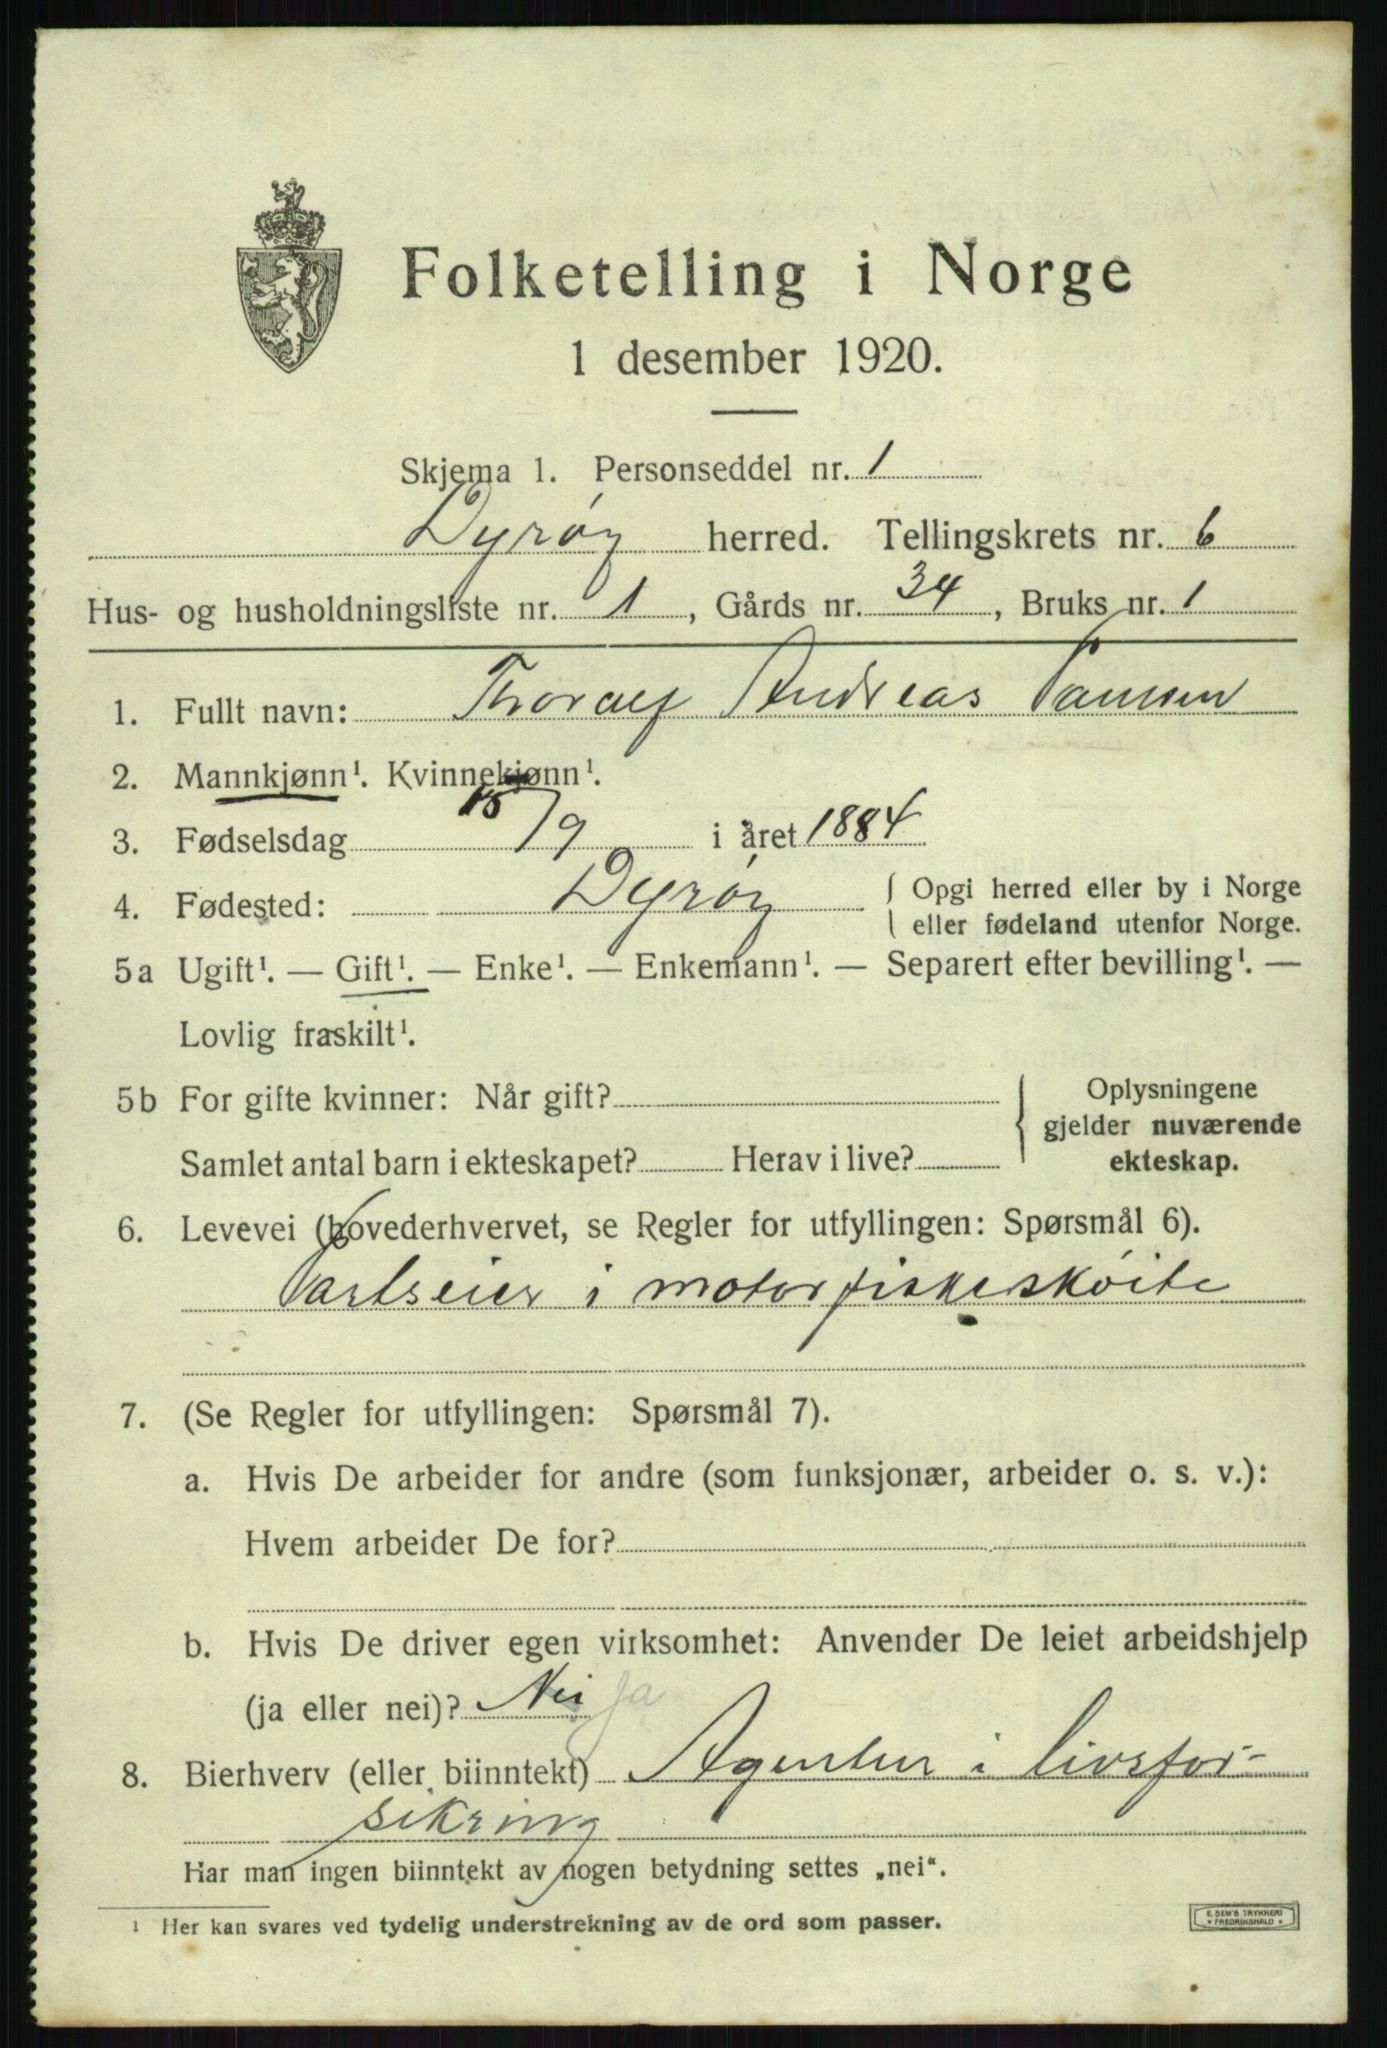 Folketelling i Norge
1 desember 1920.
Skjema 1. Personseddel nr. 1
Dyrøy herred. Tellingskrets nr. 6
Hus- og husholdningsliste nr. 1, Gårds nr. 34, Bruks nr. 1
1. Fullt navn: Thoralf Andreas Paulsen
2. Mannkjønn¹. Kvinnekjønn¹.
3. Fødselsdag 15/9 i året 1884
4. Fødested: Dyrøy { Opgi herred eller by i Norge
eller fødeland utenfor Norge.
5a Ugift¹. — Gift¹. — Enke¹. — Enkemann¹. — Separert efter bevilling¹. —
Lovlig fraskilt¹.
5b For gifte kvinner: Når gift?
Samlet antal barn i ekteskapet? Herav i live?
} Oplysningene
gjelder nuværende
ekteskap.
6. Levevei (hovederhvervet, se Regler for utfyllingen: Spørsmål 6).
Partseier i motorfiskeskøite
7. (Se Regler for utfyllingen: Spørsmål 7).
a. Hvis De arbeider for andre (som funksjonær, arbeider o. s. v.):
Hvem arbeider De for?
b. Hvis De driver egen virksomhet: Anvender De leiet arbeidshjelp
(ja eller nei)? Nei Ja
8. Bierhverv (eller biinntekt) Agentur i livsfor-
sikring
Har man ingen biinntekt av nogen betydning settes „nei“.
¹ Her kan svares ved tydelig understrekning av de ord som passer.
E. SEM'S TRYKKERI
* FREDRIKSHALD *